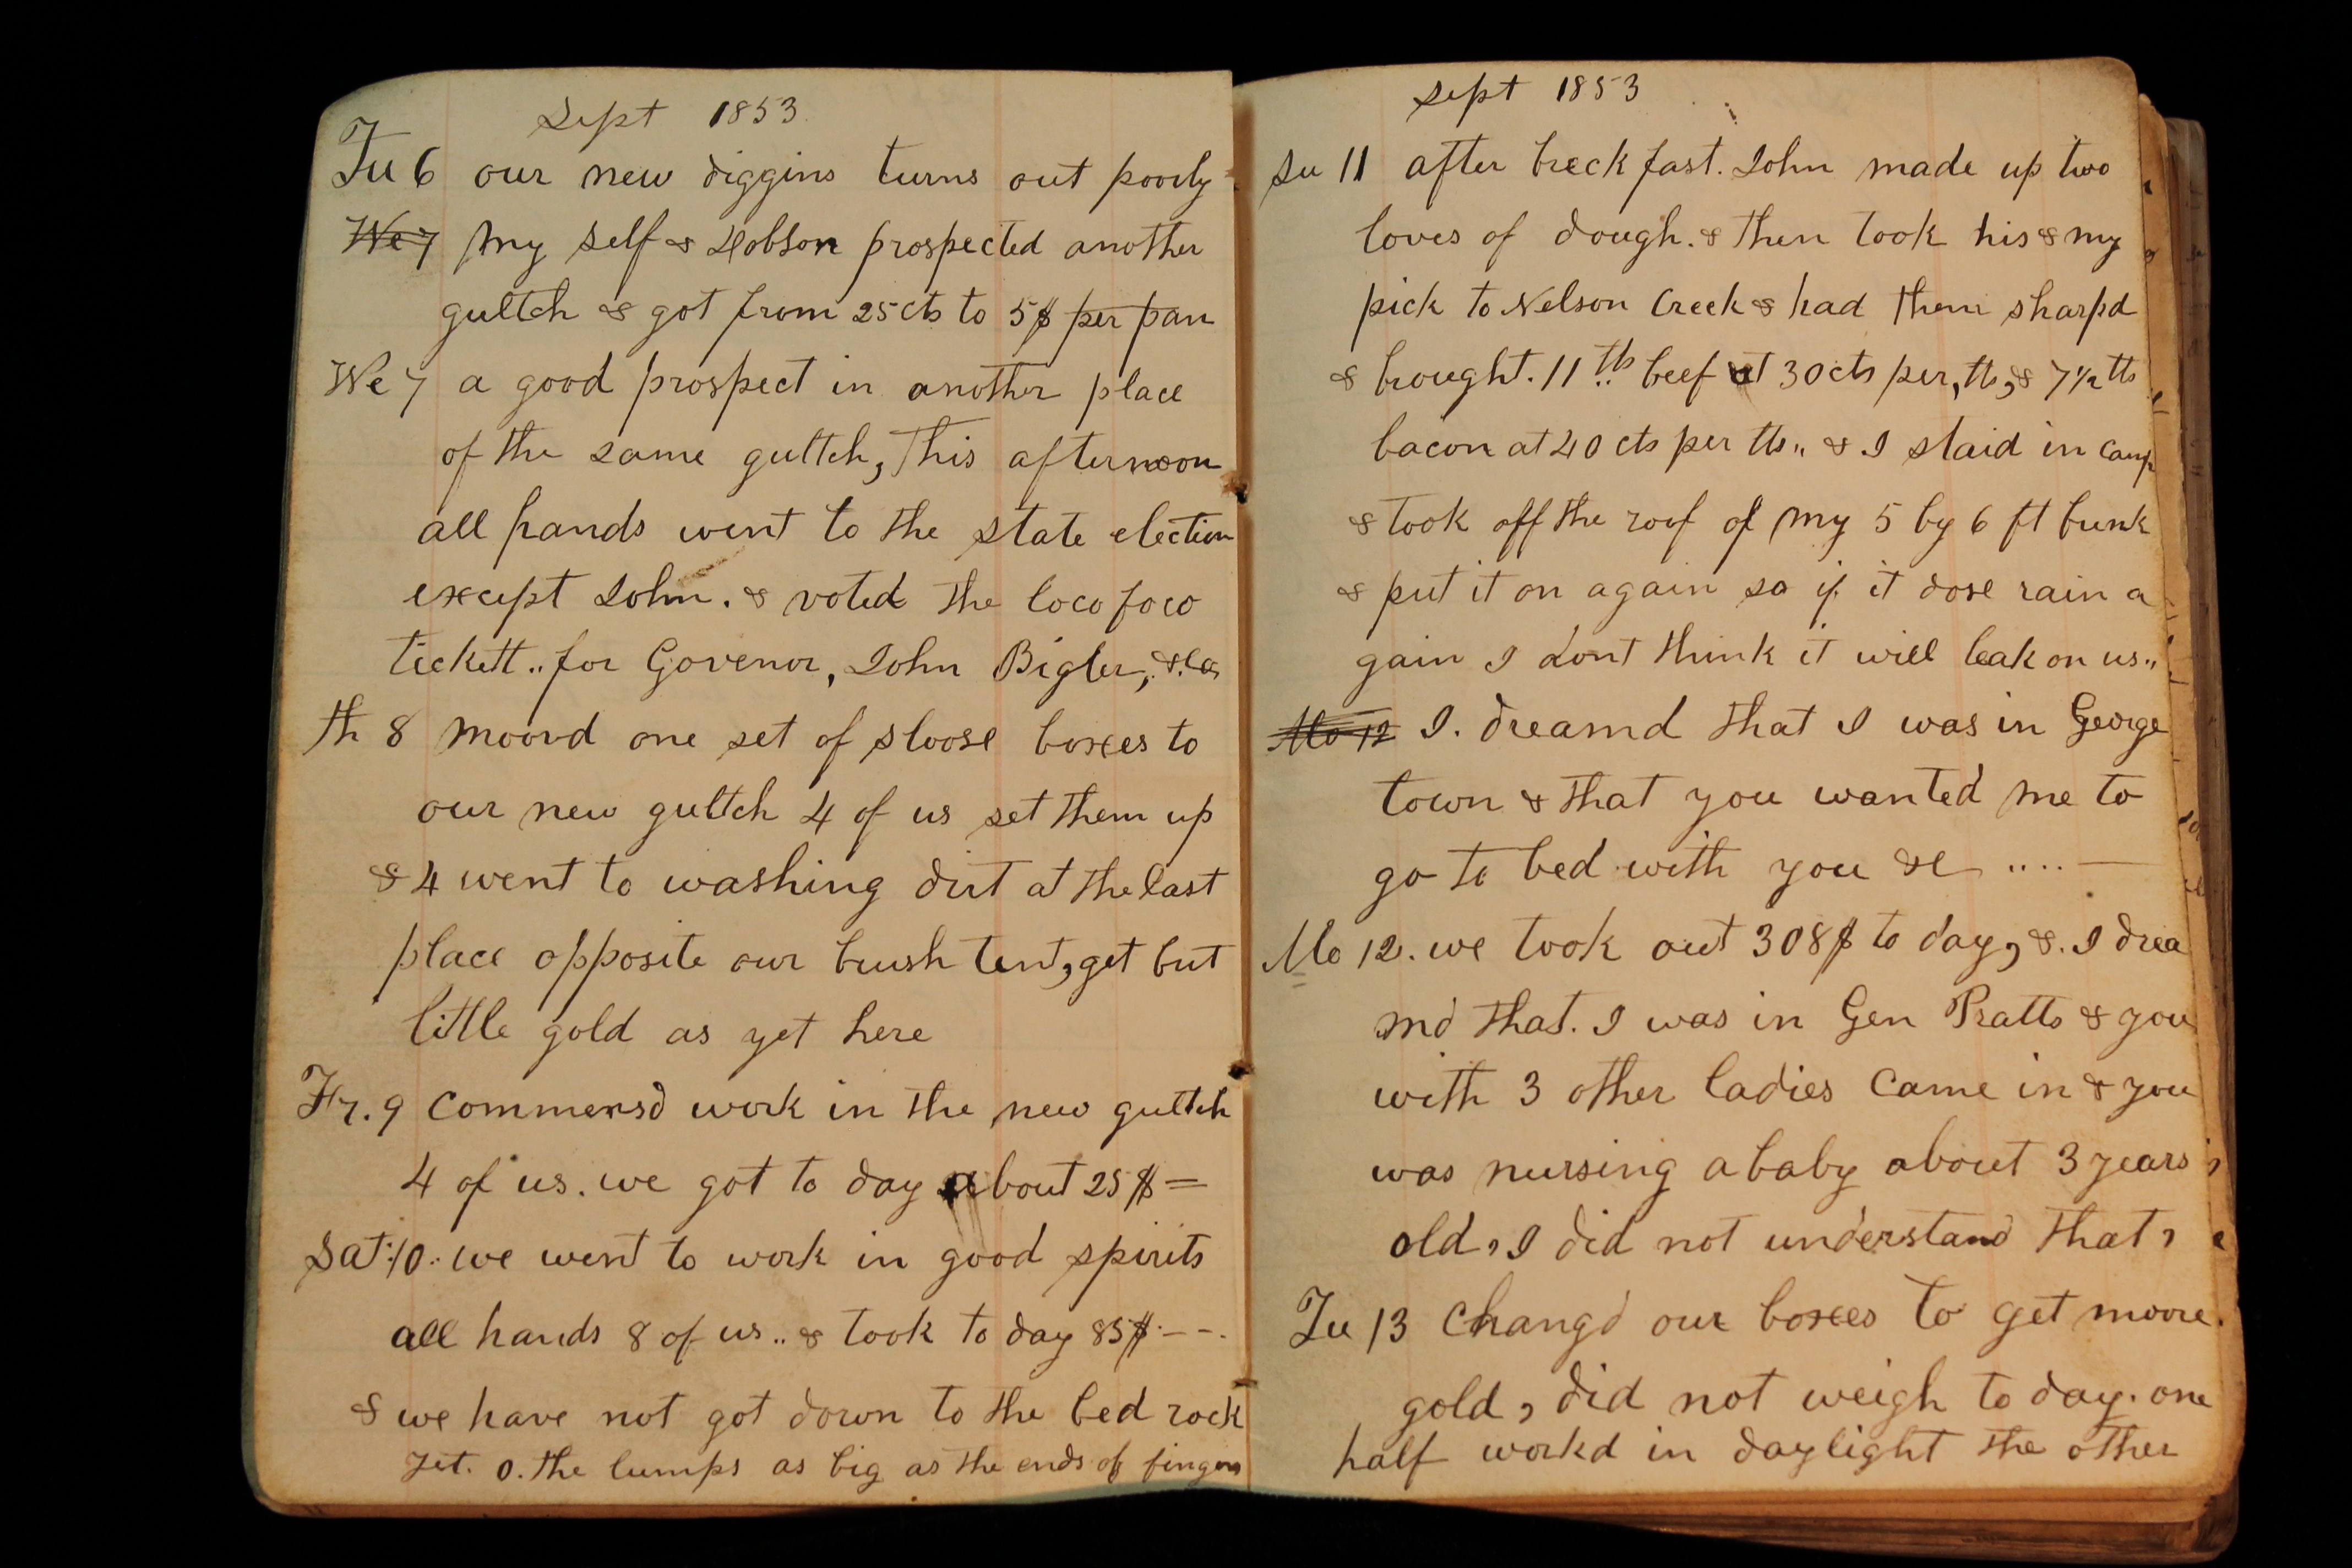 Sept 1853
Tu 6 our new diggins turns out poorly
We 7 my self & Hobson prospected another
gultch & got from 25 cts to 5$ per pan
We 7 a good prospect in another place
of the same gultch, This afternoon
all hands went to the state election
except John. & voted the loco foco
tickett .. for Govenor, John Bigler, &c
th 8 moovd one set of sloose boxes to
our new gultch 4 of us set them up
& 4 went to washing dirt at the last
place opposite our brush tent, get but
little gold as yet here
Fr. 9 Commensd work in the new gultch
4 of us. we got to day about 25$ =
Sat. 10. we went to work in good spirits
all hands 8 of us .. & took to day 85$ - - -
& we have not got down to the bed rock
yet. o. the lumps as big as the ends of fingers
Sept 1853
Su 11 after breckfast. John made up two
loves of dough. & then took his & my
pick to Nelson Creek & had them sharpd
& brought. 11 lb beef at 30 cts per, lb, & 7 1/2 lb
bacon at 40 cts per lb ,, & I staid in camp
& took off the roof of my 5 by 6 ft bunk
& put it on again so if it dose rain a
gain I dont think it will leak on us ,,
Mo 12 I. dreamd that I was in George
town & that you wanted me to
go to bed with you &c ....—
Mo 12. we took out 308$ to day, &. I drea
md that. I was in Gen Pratts & you
with 3 other ladies Came in & you
was nursing a baby about 3 years
old, I did not understand that,
Tu 13 Changd our boxes to get moore
gold, did not weigh to day. one
half workd in daylight the other